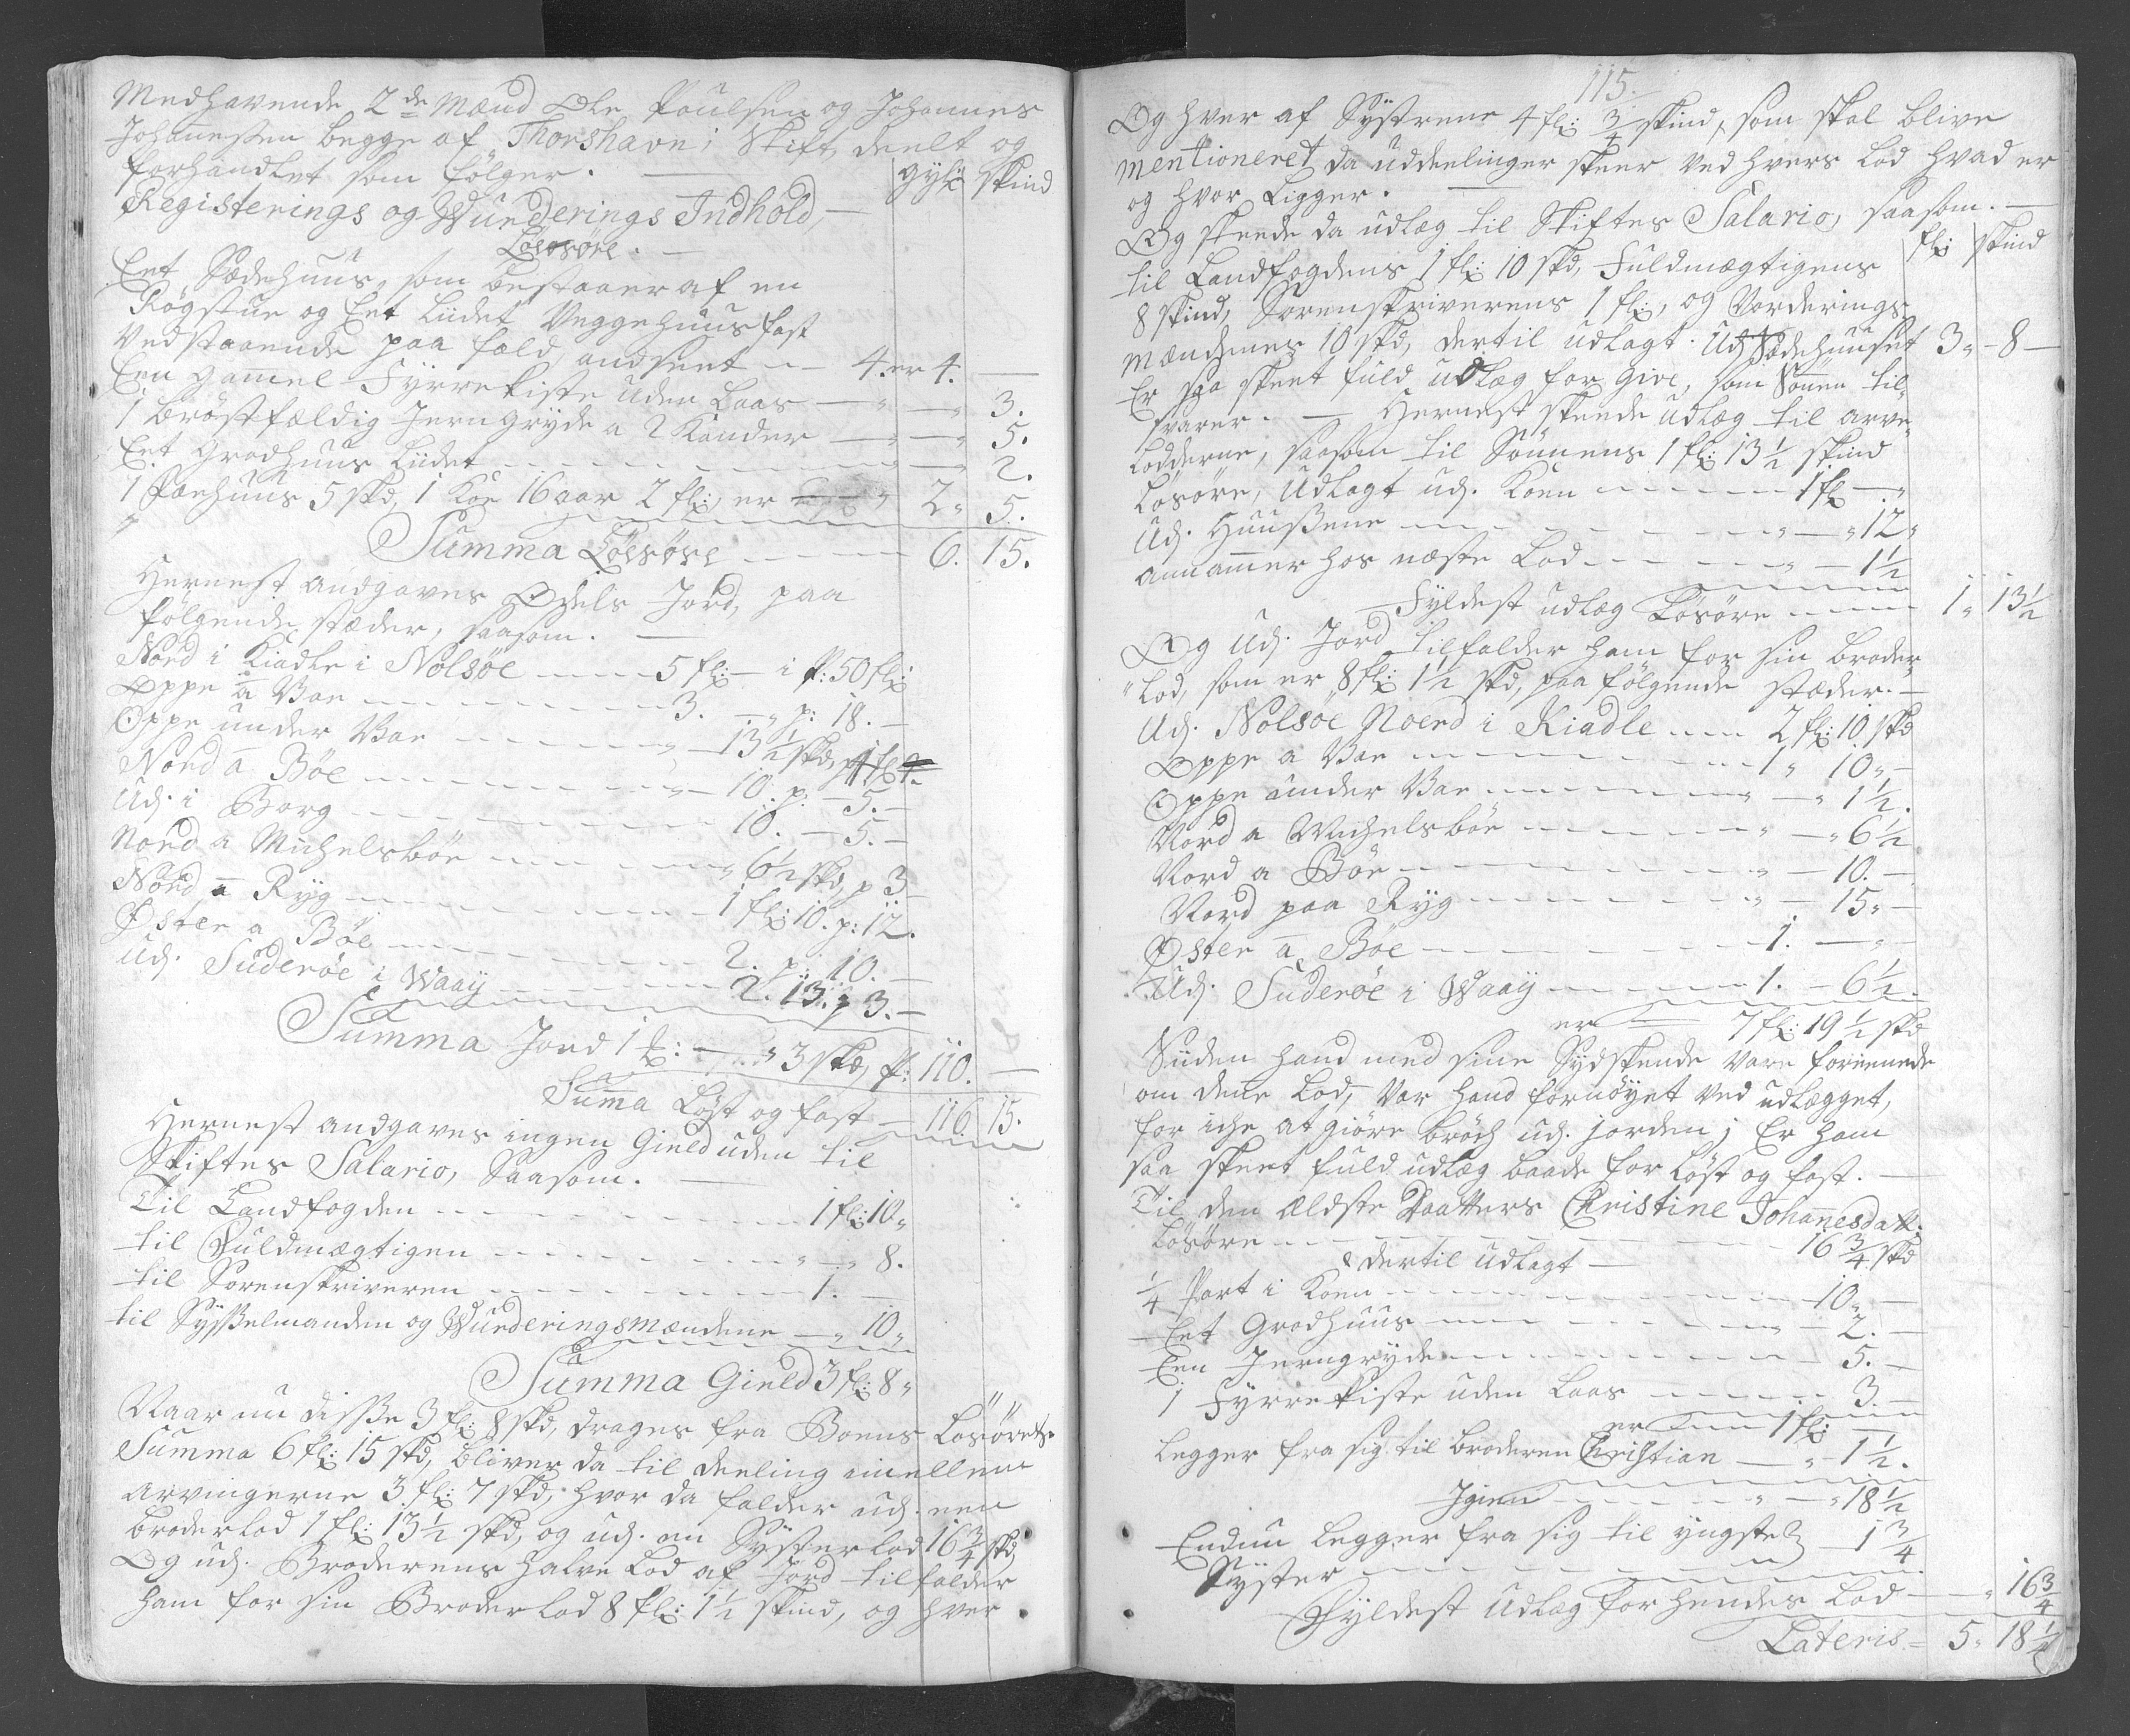 Medhavende 2de Mænd Ole Poulsen og Johannes
Johanneßen begge af Thorshavn; Skift, deelt og
forhandlet som følger. — gyl: skind
Registerings og Wurderings Indhold, —
Løesøre. —
Eet Sædehuus, som bestaaer af en
Røgstue og Eet lidet Veggehuus fast
vedstaaende paa fald, andseet — 4. er 4. —
Een gamel Fyrrekiste uden Laas — " — " 3.
1 brøstfældig Jerngryde a 2 Kander — " — " 5.
Eet Grødhuus lidet — " 2.
1 Faehuus 5 skd, 1 Koe 16 aar 2 fl:, er — " 2 " 5.
Summa Løesøre — 6. 15.
Hernest andgaves Odels Jord, paa
følgende stæder, saasom. —
Nord i Kiadle i Nolsøe — 5 fl: — i p: 50 fl:
Oppe a Bae — 3. — " p: 18. —
Oppe under Bae — " — 13 1/2 skd, p 4.
Nord a Bøe — " — 10. p: — 5. —
Udj i Borg — 10. — 5. —
Nord a Michelsbøe — " 6 1/2 skd, p 3 —
Nord a Ryg — 1 fl: 10. p: 12.
Øster a Bøe — 2. p: 10. —
Udj Suderøe i Waay — 2. 13. p 3. —
Summa Jord 1 — " 3 skd, p: 110. —
Summa Løst og fast — 116. 15.
Hernest andgaves ingen Gield uden til
Skiftes Salario, Saasom. —
Til Landfogden — 1 fl: 10 "
til Fuldmægtigen — " — " 8.
til Sorenskriveren — 1. —
til Sysselmanden og Wurderingsmændene — " 10 "
Summa Gield 3 fl: 8 "
Naar nu disse 3 fl: 8 skd, drages fra Boens Løsørets
Summa 6 fl: 15 skd, bliver da til deeling imellem
Arvingerne 3 fl: 7 skd, hvor da falder udj een
broderlod 1 fl: 13 1/2 skd, og udj en Systerlod 16 3/4 skd,
Og udj Broderens halve Lod af Jord tilfalder
ham for sin Broderlod 8 fl: 1 1/2 skind, og hver
115.
Og hver af Systrene 4 fl: 3/4 skind, som skal blive
mentioneret, da uddeelinger skeer ved hvers lod hvad er
og hvor Ligger. —
Og skeede da udlæg til Skiftes Salario, saasom. —
fl: skind
til Landfogdens 1 fl: 10 skd, Fuldmægtigens
8 skind, Sorenskriverens 1 fl:, og Vorderings
mændenes 10 skd, dertil udlagt. Udj Sædehuuset 3 " — 8 —
Er saa skeet fuld udlæg for Give, som Sønnen til-
svarer. — Hernest skeede udlæg til arve-
lodderne, saasom til Sønnens 1 fl: 13 1/2 skind
Løsøre, Udlagt udj Koen — 1 fl — "
Udj Huusene — " — " 12 "
annammer hos næste Lod — " — 1 1/2
Fyldest udlæg Løsøre — 1 " 13 1/2
Og Udj Jord tilfalder ham for sin broder-
lod, som er 8 fl: 1 1/2 skd, paa følgende stæder. —
Udj Nolsøe Noerd i Kiadle — 2 fl: 10 skd
Oppe a Bae — 1 " 10 " —
Oppe under Bae — " — " 1 1/2.
Nord a Michelsbøe — " — " 6 1/2
Nord a Bøe — " — 10. —
Nord paa Ryg — " — 15 " —
Øster a Bøe — 1. — " —
Udj Suderøe i Waay — 1. — 6 1/2.
er — 7 fl: 19 1/2 skd
Siiden hand med sine Sydskende vare foreenede
om dene Lod, var hand fornøyet ved udlægget,
for iche at giøre brøch udj jorden; Er ham
saa skeet fuld udlæg baade for løst og fast. —
Til den ældste Daatters Christine Johannesdatt:
Løsøre — 16 3/4 skd
dertil udlagt —
1/4 Part i Koen — 10 " —
Eet Grødhuus — " — 2. —
Een Jerngryde — 5. —
1 Fyrrekiste uden Laas — 3. —
er — 1 fl: —
legger fra sig til broderen Christian — " — 1 1/2.
Igien — " — " 18 1/2
Endnu legger fra sig til yngste — 1 3/4
Syster —
Fyldest Udlæg for hendes Lod — " 16 3/4
Lateris — 5 " 18 1/4